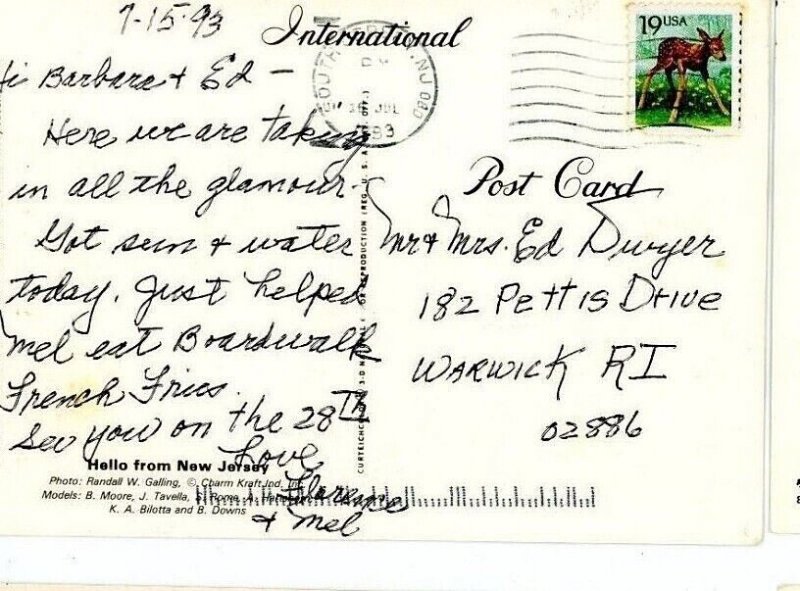 7-15-93
Hi Barbara + Ed —
Here we are taking
in all the glamour -
Got sun + water
today. Just helped
Mel eat Boardwalk
French Fries.
See you on the 28TH
Love,
Florence
+ Mel
Hello from New Jersey
Photo: Randall W. Galling, © Charm Kraft Ind. Inc.
Models: B. Moore, J. Tavella, S. Rome, A.
K. A. Bilotta and B. Downs
International
Post Card
SOUTH NJ 080
PM
JUL
1993
19 USA
Mr + Mrs. Ed Dwyer
182 Pettis Drive
WARWICK RI
02886